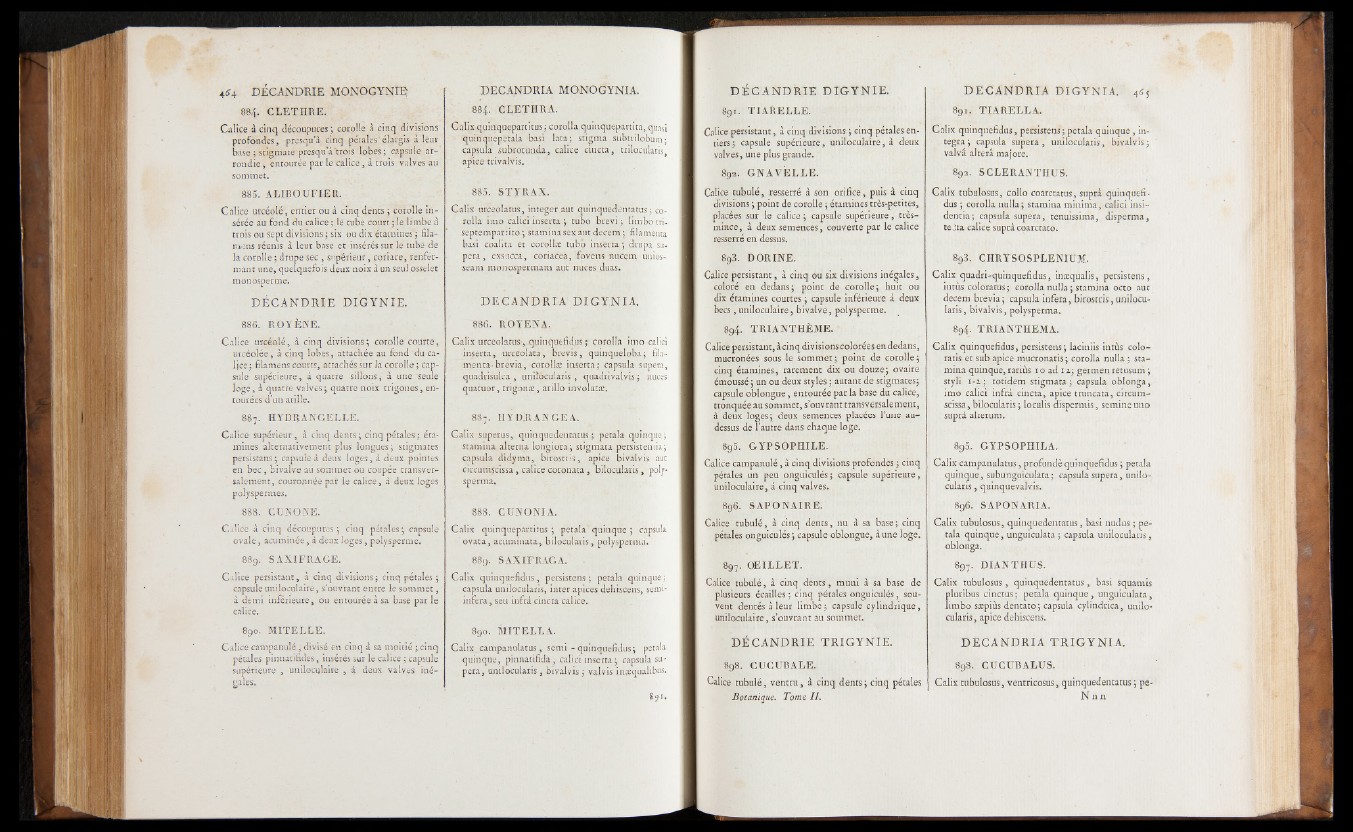 464 DÉCANDRIE MONOGYNIE
884. CLETHRE.
Calice à cinq découpures ; corolle à cinq divisions
profondes, presqu'à cinq pétales élargis à leur
base ; stigmate presqu'à trois lobes ; capsule ar-
rondie, entourée par le calice, à trois valves au
sommet.
885. ALIBOUFIER.
Calice urcéolé, entier ou à cinq dents ; corolle in-
sérée au fond du calice : le tube court ; le limbe à
trois ou sept divisions ; six ou dix étamines ; fila-
mens réunis à leur base et insérés sur le tube de
la corolle ; drupe sec, supérieur, coriace, renfer-
mant une, quelquefois deux noix à un seul osselet
monosperme.
DÉCANDRIE DIGYNIE.
886. ROYÈNE.
Calice urcéolé, à cinq divisions ; corolle courte,
urcéolée, à cinq lobes, attachée au fond du ca-
lice ; filamens courts, attachés sur la corolle ; cap-
sule supérieure, à quatre sillons, à une seule
loge, à quatre valves ; quatre noix trigones, en-
tourées d'un arille.
887. HYDRANGELLE.
Calice supérieur, à cinq dents ; cinq pétales ; éta-
mines alternativement plus longues ; stigmates
persistans ; capsule à deux loges, à deux pointes
en bec, bivalve au sommet ou coupée transver-
salement, couronnée par le calice, à deux loges
polyspermes.
888. CUNONE.
Calice à cinq découpures ; cinq pétales ; capsule
ovale, acuminée, à deux loges, polysperme.
889. SAXIFRAGE.
Calice persistant, à cinq divisions ; cinq pétales ;
capsule uniloculaire, s'ouvrant entre le sommet,
à demi inférieure, ou entourée à sa base par le
calice.
890. MITELLE.
Calice campanulé, divisé en cinq à sa moitié ; cinq
pétales pinnatifides, insérés sur le calice ; capsule
supérieure, uniloculaire, à deux valves iné-
gales.
DECANDRIA MONOGYNIA.
884. CLETHRA.
Calix quinquepartitus ; corolla quinquepartita, quasi
quinquepetala basi lata ; stigma subtrilobum ;
capsula subrotunda, calice cincta, trilocularis,
apice trivalvis.
885. STYRAX.
Calix urceolatus, integer aut quinquedentatus ; co-
rolla imo calici inserta ; tubo brevi ; limbo tri-
septempartito ; stamina sex aut decem ; filamenta
basi coalita et corollæ tubo inserta ; drupa su-
pera, exsucca, coriacea, fovens nucem unios-
seam monospermam aut nuces duas.
DECANDRIA DIGYNIA.
886. ROYENA.
Calix urceolatus, quinquefidus ; corolla imo calici
inserta, urceolata, brevis, quinqueloba ; fila-
menta brevia, corollæ inserta ; capsula supera,
quadrisulca, unilocularis, quadrivalvis ; nuces
quatuor, trigonæ, arillo involutæ.
887. HYDRANGEA.
Calix superus, quinquedentatus ; petala quinque ;
stamina alterna longiora ; stigmata persistentia ;
capsula didyma, birostris, apice bivalvis aut
circumscissa, calice coronata, bilocularis, poly-
sperma.
888. CUNONIA.
Calix quinquepartitus ; petala quinque ; capsula
ovata, acuminata, bilocularis, polysperma.
889. SAXIFRAGA.
Calix quinquefidus, persistens ; petala quinque ;
capsula unilocularis, inter apices dehiscens, semi-
infera, seu infrà cincta calice.
890. MITELLA.
Calix campanulatus, semi-quinquefidus ; petala
quinque, pinnatifida, calici inserta ; capsula su-
pera, unilocularis, bivalvis ; valvis inæqualibus.
891.
DÉCANDRIE DIGYNIE.
891. TIARELLE.
Calice persistant, à cinq divisions ; cinq pétales en-
tiers ; capsule supérieure, uniloculaire, à deux
valves, une plus grande.
892. GNAVELLE.
Calice tubulé, resserré à son orifice, puis à cinq
divisions ; point de corolle ; étamines très-petites,
placées sur le calice ; capsule supérieure, très-
mince, à deux semences, couverte par le calice
resserré en dessus.
893. DORINE.
Calice persistant, à cinq ou six divisions inégales,
coloré en dedans ; point de corolle ; huit ou
dix étamines courtes ; capsule inférieure à deux
becs, uniloculaire, bivalve, polysperme.
894. TRIANTHÈME.
Calice persistant, à cinq divisions colorées en dedans,
mucronées sous le sommet ; point de corolle ;
cinq étamines, rarement dix ou douze ; ovaire
émoussé ; un ou deux styles ; autant de stigmates ;
capsule oblongue, entourée par la base du calice,
tronquée au sommet, s'ouvrant transversalement,
à deux loges ; deux semences placées l'une au-
dessus de l'autre dans chaque loge.
895. GYPSOPHILE.
Calice campanulé, à cinq divisions profondes ; cinq
pétales un peu onguiculés ; capsule supérieure,
uniloculaire, à cinq valves.
896. SAPONAIRE.
Calice tubulé, à cinq dents, nu à sa base ; cinq
pétales onguiculés ; capsule oblongue, à une loge.
897. OEILLET.
Calice tubulé, à cinq dents, muni à sa base de
plusieurs écailles ; cinq pétales onguiculés, sou-
vent dentés à leur limbe ; capsule cylindrique,
uniloculaire, s'ouvrant au sommet.
DÉCANDRIE TRIGYNIE.
898. CUCUBALE.
Calice tubulé, ventru, à cinq dents ; cinq pétales
Botanique. Tome II.
DECANDRIA DIGYNIA. 465
891. TIARELLA.
Calix quinquefidus, persistens ; petala quinque, in-
tegra ; capsula supera, unilocularis, bivalvis ;
valvâ alterâ majore.
892. SCLERANTHUS.
Calix tubulosus, collo coarctatus, suprà quinquefi-
dus ; corolla nulla ; stamina minima, calici insi-
dentia ; capsula supera, tenuissima, disperma,
tecta calice suprà coarctato.
893. CHRYSOSPLENIUM.
Calix quadri-quinquefidus, inæqualis, persistens,
intùs coloratus ; corolla nulla ; stamina octo aut
decem brevia ; capsula infera, birostris, unilocu-
laris, bivalvis, polysperma.
894. TRIANTHEMA.
Calix quinquefidus, persistens ; laciniis intùs colo-
ratis et sub apice mucronatis ; corolla nulla ; sta-
mina quinque, rariùs 10 ad 12 ; germen retusum ;
styli 1-2 ; totidem stigmata ; capsula oblonga,
imo calici infrà cincta, apice truncata, circum-
scissa, bilocularis ; loculis dispermis, semine uno
suprà alterum.
895. GYPSOPHILA.
Calix campanulatus, profundè quinquefidus ; petala
quinque, subunguiculata ; capsula supera, unilo-
cularis, quinquevalvis.
896. SAPONARIA.
Calix tubulosus, quinquedentatus, basi nudus ; pe-
tala quinque, unguiculata ; capsula unilocularis,
oblonga.
897. DIANTHUS.
Calix tubulosus, quinquedentatus, basi squamis
pluribus cinctus ; petala quinque, unguiculata,
limbo sæpiùs dentato ; capsula cylindrica, unilo-
cularis, apice dehiscens.
DECANDRIA TRIGYNIA.
898. CUCUBALUS.
Calix tubulosus, ventricosus, quinquedentatus ; pe-
N n n